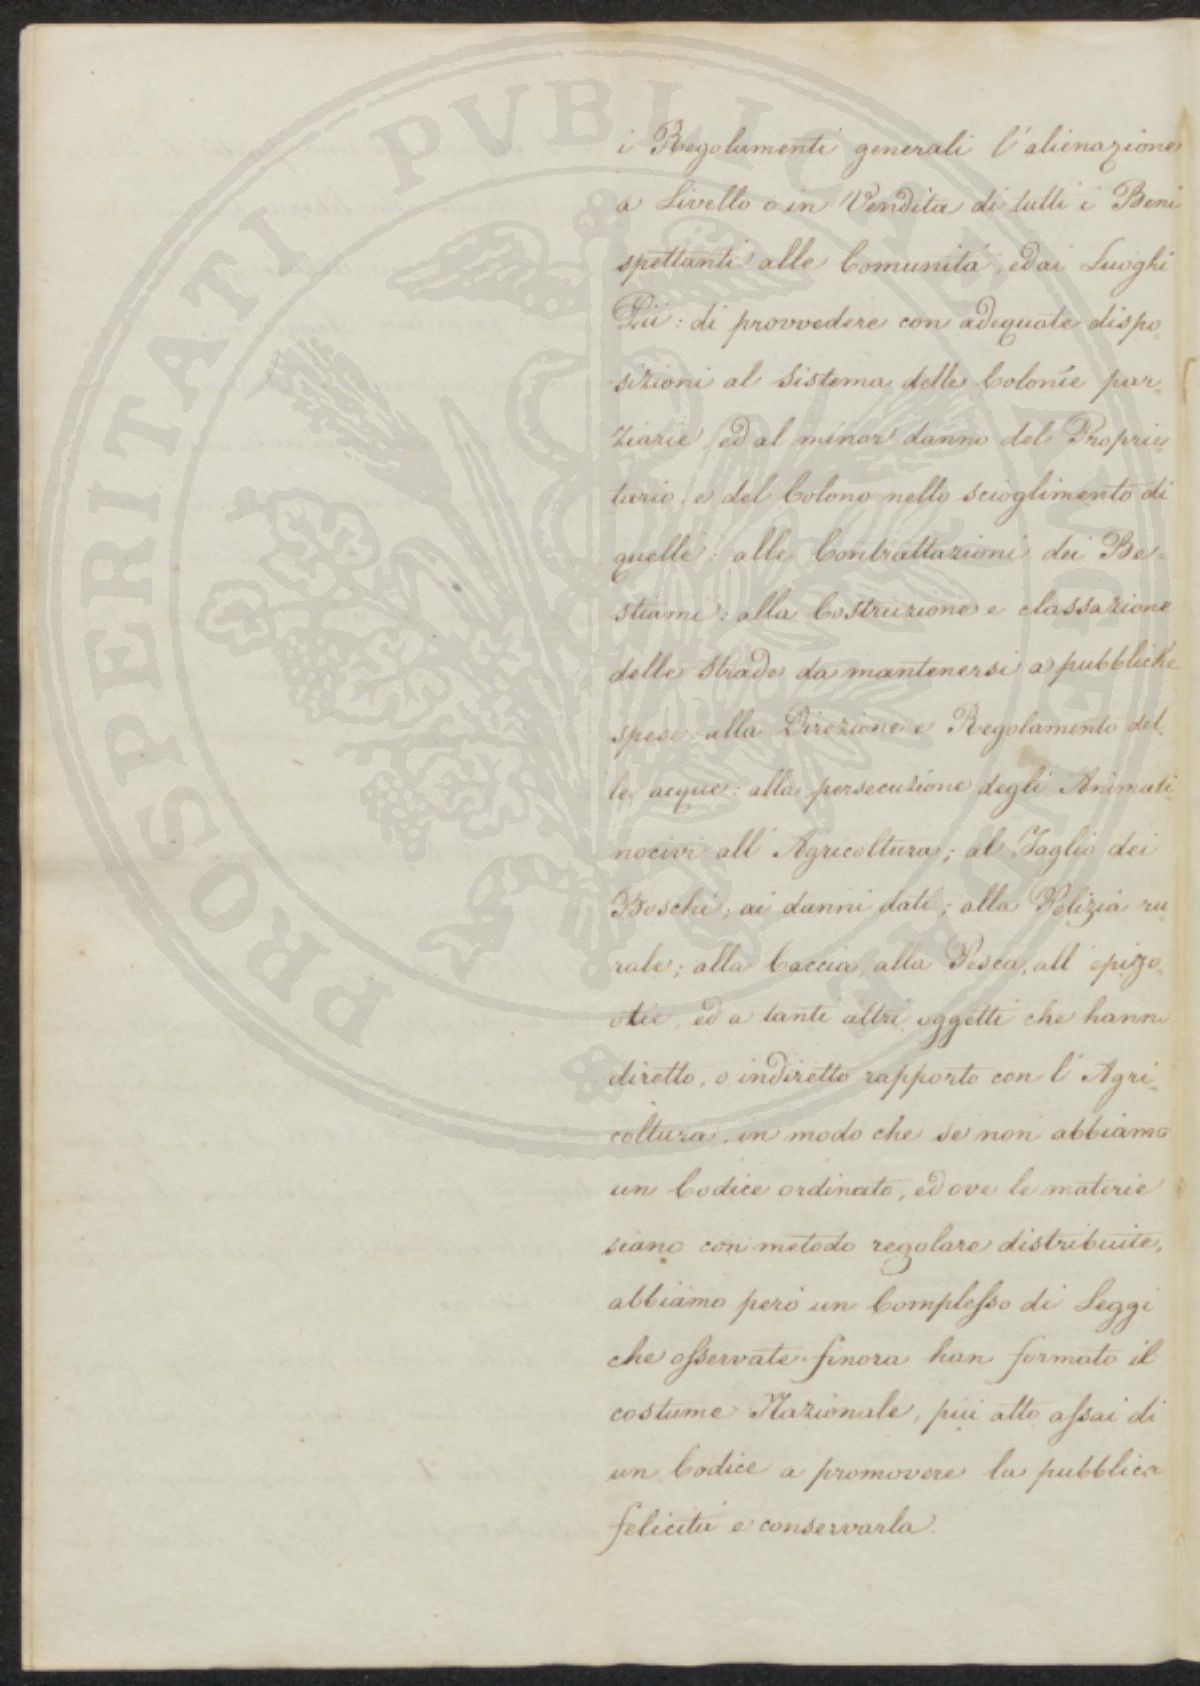 i Regolamenti generali l'alienazione
a Livello o in Vendita di tutti i Beni
spettanti alle Comunitá, ed ai Luoghi
Pii: di provvedere con adequate dispo
sizioni al Sistema delle Coloníe par-
ziarie, ed al minor danno del Proprie
tario, e del Colono nello scioglimento di
quelle: alle Contrattazioni dei Be-
stiami: alla Costruzione e classazione
delle Strade da mantenersi a pubbliche
spese: alla Direzione e Regolamento del
le acque: alla persecuzione degli Animali
nocivi all'Agricoltura; al Taglio dei
Boschi; ai danni dati; alla Polizia ru
rale; alla Caccia, alla Pesca, all'epizo
otie, ed a tanti altri oggetti che hanno
diretto, o indiretto rapporto con l'Agri-
coltura, in modo che se non abbiamo
un Codice ordinato, ed ove le materie
siano con metodo regolare distribuite,
abbiamo peró un Complesso di Leggi
che osservate finora han formato il
costume Nazionale, piú atto assai di
un Codice a promovere la pubblica
felicitá e conservarla.
PROSPERITATI PUBLICAE AUGENDAE